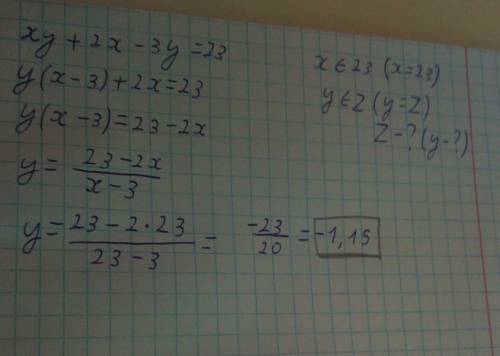 xy + 2x - 3y = 23
y(x-3) + 2x = 23
y(x-3) = 23 - 2x
y = \frac{23-2x}{x-3}
y = \frac{23-2·23}{23-3} = \frac{-23}{20} = -1,15
x ∈ 23 (x=23)
y ∈ Z (y=Z)
Z - ? (y-?)